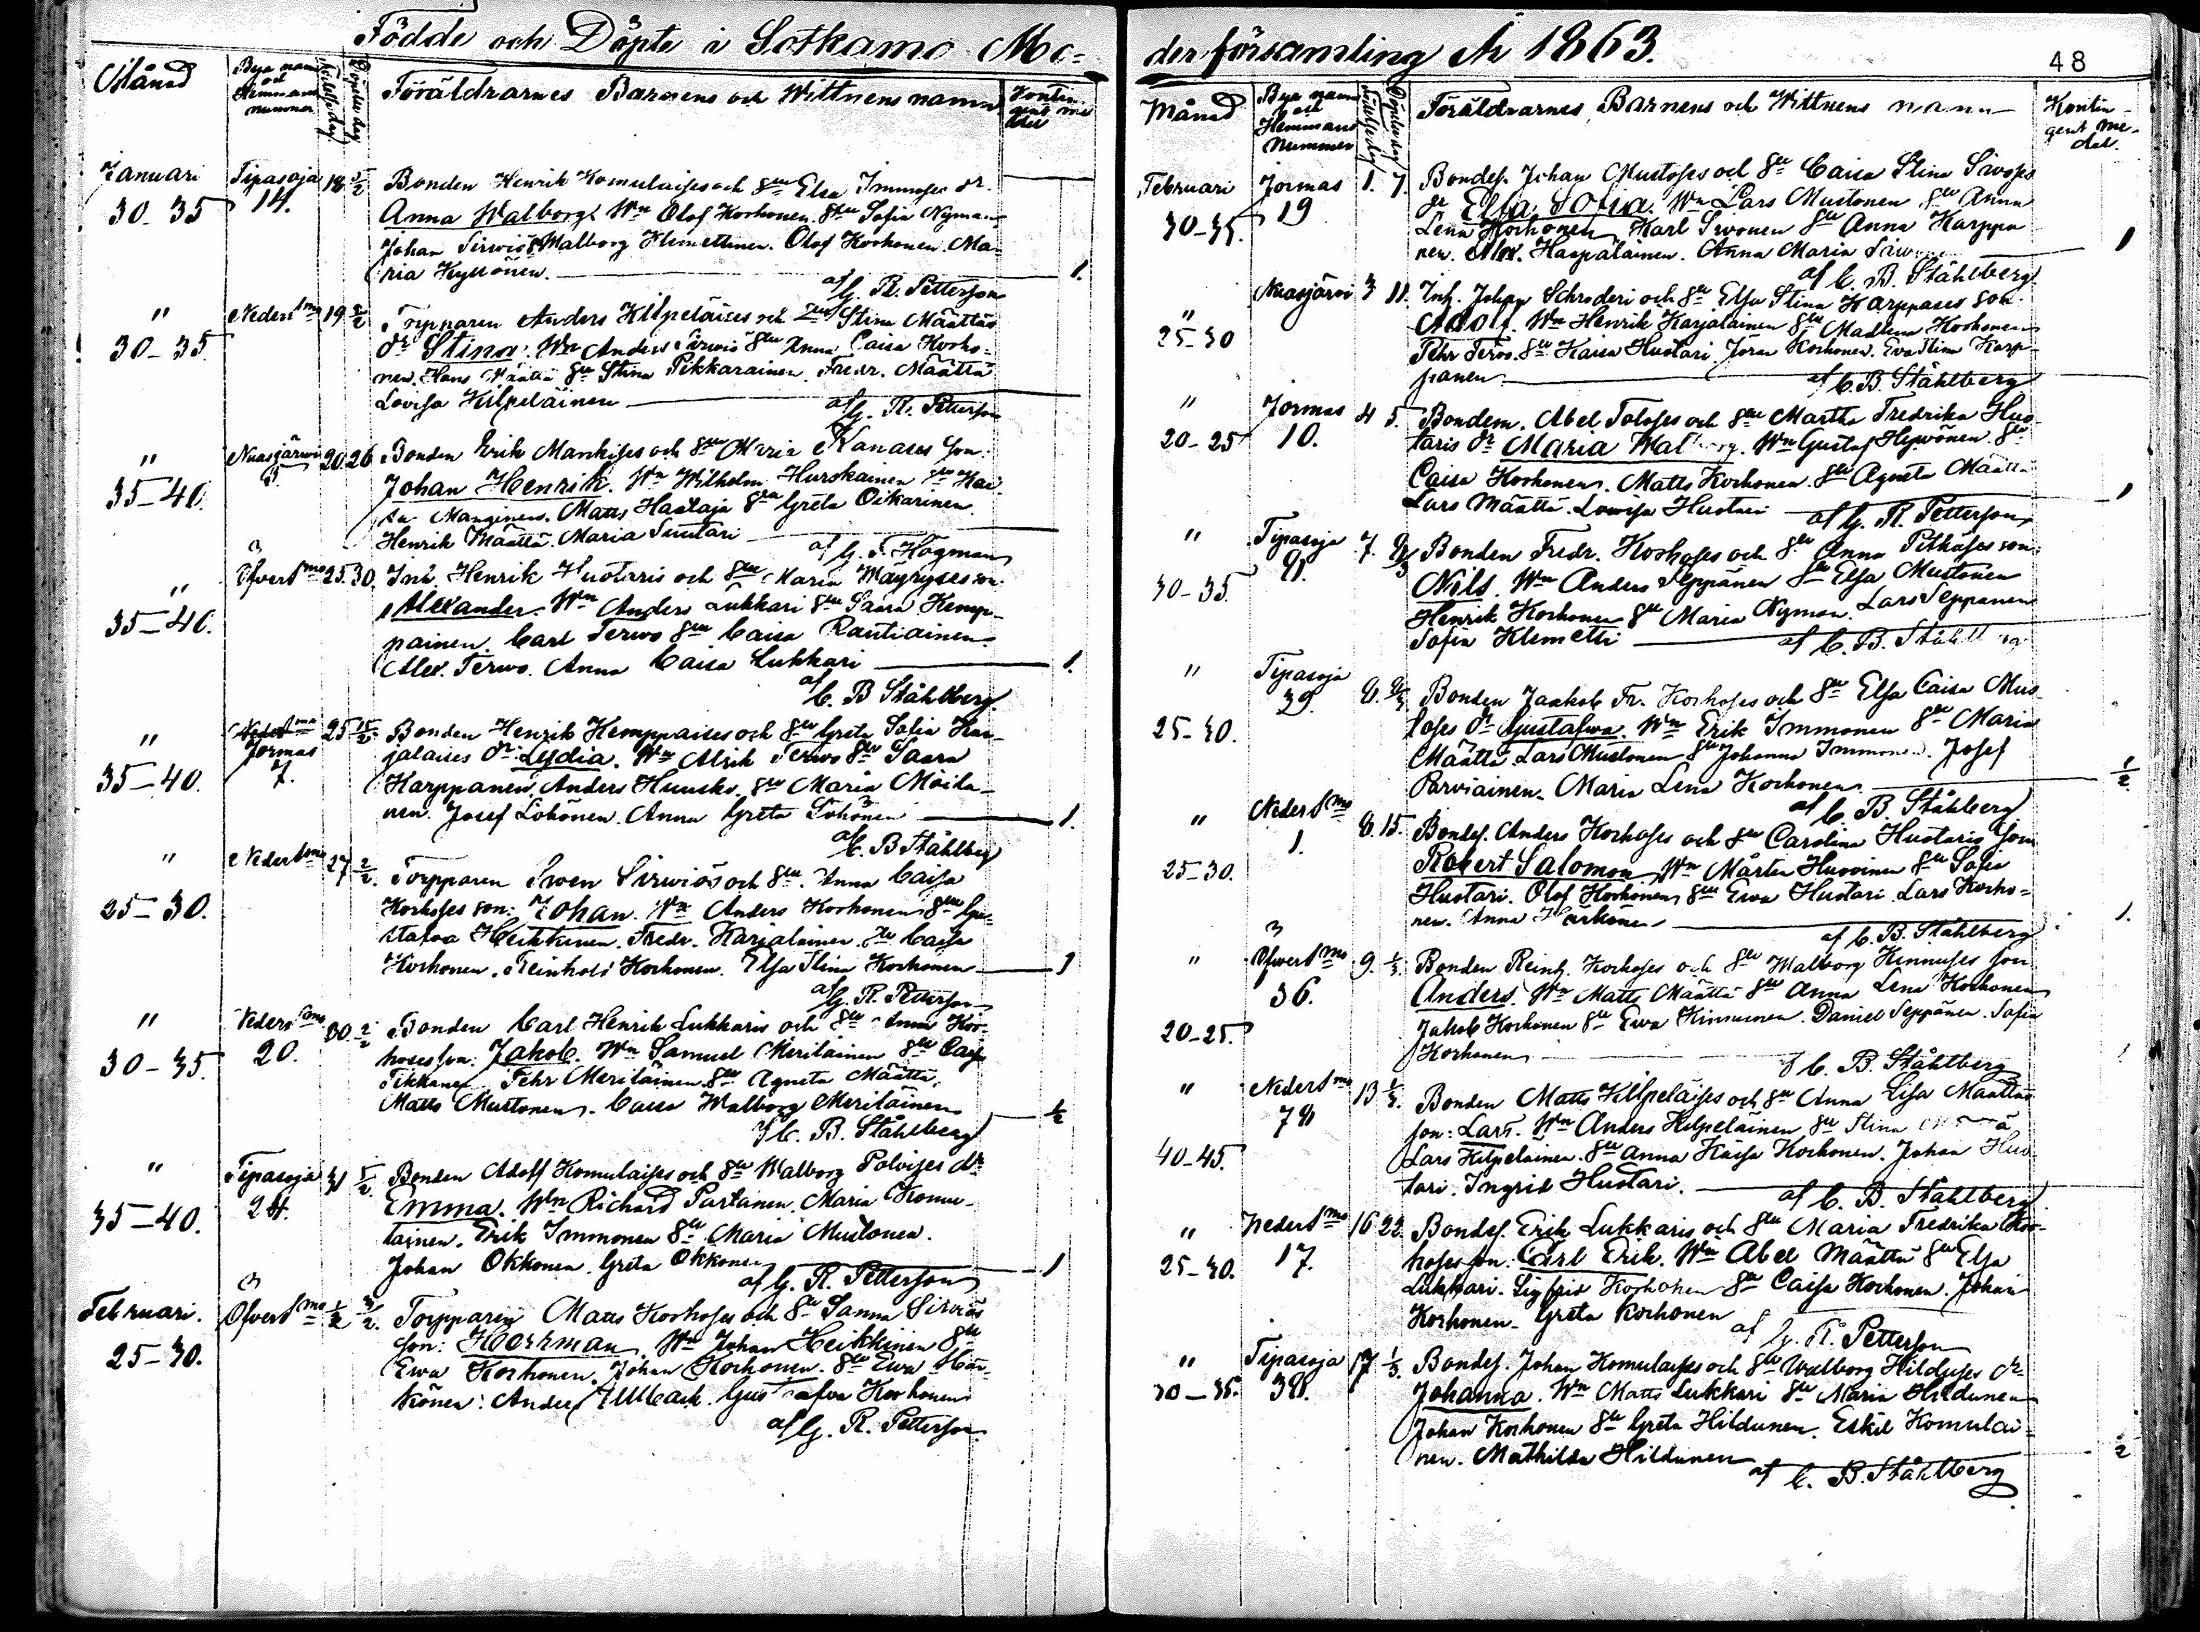 Födde och Döpte i Sotkamo Mo-
Månad
Bya namn och Hemmans nummer
Födelsedag
Döpelsedag
Föräldrarnes Barnens och Wittnens namn
Januari Tipasoja 18 5/2 Bonden Henrik Komulaises och Hu Elsa Immoses dr.
30-35 14. Anna Walborg. Wn Olof Korhonen Hu Sofia Nyman
Johan Sirwiö Walborg Klemettinen. Olof Korhonen. Ma-
ria Kyllönen. 1.
af G. R. Petterson
" Neders.mo 19 Torpparen Anders Kilpeläises och Stina Määttäs
30-35 dr Stina. Wn Anders Sirwiö Hu Anna Caisa Korho-
nen. Hans Määttä Hu Stina Pikkarainen. Fredr. Määttä
Lovisa Kilpeläinen
af G. R. Petterson
" Nuasjärwi 20 26 Bonden Erik Mankises och Hu Maria Kanases son:
35-40. Johan Henrik. Wn Wilhelm Hurskainen Kai-
sa Manginen. Matts Haataja Hu Greta Oikarinen
Henrik Määttä. Maria Suutari
af G. F. Hagman
" Öfvers.mo 25. 30. Inh. Henrik Huotaris och Hu Maria Mäyryses son.
35-40. Alexander. Wn Anders Lukkari Hu Saara Kemp-
painen. Carl Terwo Hu Caisa Rautiainen.
Alex. Terwo. Anna Caisa Lukkari 1.
af C. B Ståhlberg.
" Jormas 25 15/2 Bonden Henrik Kemppaises och Hu Greta Sofia Kar-
35-40. 7. jalaises dr Lydia. Wn Alrik Terwo Hu Saara
Karppanen. Anders Huusko. Hu Maria Moila-
nen. Josef Lohönen. Anna Greta Lohönen 1.
af C. B Ståhlberg
" Neders.mo 27 2/2. Torpparen Swen Sirwiös och Hu. Anna Caisa
25-30. Korhoses son: Johan. Wn Anders Korhonen Hu Gu-
stafva Heikkinen. Fredr. Karjalainen. Caisa
Korhonen. Reinhold Korhonen. Elsa Stina Korhonen 1
af G. R. Petterson
" Neders.mo 30. 2/2 Bonden Carl Henrik Lukkaris och Hu Anna Kor-
30-35. 20. hoses son. Jakob. Wn Samuel Meriläinen Hu Caisa
Tikkanen Pehr Meriläinen Hu Agneta Määttä.
Matts Mustonen. Caisa Walborg Meriläinen 1/2
af C. B. Ståhlberg
" Tipasoja 31 5/2 Bonden Adolf Komulaises och Hu Walborg Polvises dr
35-40. 24. Emma. Wn Richard Partanen. Maria Komu-
lainen. Erik Immonen Hu Maria Mustonen.
Johan Okkonen. Greta Okkonen 1
af G. R. Petterson
Februari. Öfvers.mo Torpparen Matts Korhoses och Hu Sanna Sirwiös
25-30. son: Herrman. Wn Johan Heikkinen Hu
Ewa Korhonen. Johan Korhonen. Hu Ewa Här-
könen: Anders Gustafva Korhonen
af G. R. Petterson.
der församling År 1863.
48
Månad
Bya namn och Hemmans Nummer
Födelsedag
Döpelsedag
Föräldrarnes Barnens och Wittnens namn
Kontin-
gent me-
del.
Februari Jormas 1. 7. Bondes. Johan Mustoses och Hu Caisa Stina Siwoses
30-35. 19 dr Elsa Sofia. Wn Lars Mustonen Hu Anna
Lena Korhonen. Karl Siwonen Hu Anna Karppa-
nen. Alex. Haapalainen. Anna Maria 1
af C. B. Ståhlberg.
" Nuasjärwi 3 11. Inh. Johan Schroderi och Hu Elsa Stina Karppases son.
25-30 Adolf. Wn Henrik Karjalainen Hu Madlena Korhonen
Pehr Terwo. Hu Kaisa Huotari. Jöran Korhonen. Eva Stina Karp-
panen
af C. B. Ståhlberg
" Jormas 4 5. Bondem. Abel Toloses och Hu Martha Fredrika Huo-
20-25 10. taris dr Maria Walborg. Wn Gustaf Hyvönen. Hu
Caisa Korhonen. Matts Korhonen. Hu Agneta Määttä
Lars Määttä. Lowisa Huotari 1
af G. R. Petterson
" Tipasoja 7. Bonden Fredr. Korhoses och Hu Anna Pitkäses son:
30-35. Nils. Wn Anders Seppänen Hu Elsa Mustonen
Henrik Korhonen Hu Maria Nyman. Lars Seppänen
Sofia Klemetti
af C. B. Ståhlberg
" Tipasoja 8. Bonden Jaakob Fr. Korhoses och Hu Elsa Caisa Mus-
25-30. 39. toses dr Gustafwa. Wn Erik Immonen Hu Maria
Määttä. Lars Mustonen Hu Johanna Immonen. Josef
Parviainen. Maria Lena Korhonen. 1/2
af C. B. Ståhlberg
" Neders.mo 8. 15. Bondes. Anders Korhoses och Hu Carolina Huotaris son
25-30. 1. Robert Salomon. Wn Mårten Huovinen Hu Sofia
Huotari. Olof Korhonen Hu Ewa Huotari. Lars Korho-
nen. Anna Härkönen 1.
af C. B. Ståhlberg
" Öfvers.mo 9. 1/3. Bonden Reinh. Korhoses och Hu Walborg Kinnuses son
20-25. 36. Anders. Wn Matts Määttä Hu Anna Lena Korhonen
Jakob Korhonen Hu Ewa Kinnunen. Daniel Seppänen. Sofia
Korhonen
af C. B. Ståhlberg
" Neders.mo 13 1/3. Bonden Matts Kilpeläises och Hu Anna Lisa Määttäs
40-45. son: Lars. Wn Anders Kilpeläinen Hu Stina
Lars Kilpeläinen. Hu Anna Kaisa Korhonen. Johan Huo-
tari. Ingrid Huotari.
af C. B. Ståhlberg
" Neders.mo 16 22. Bondes. Erik Lukkaris och Hu Maria Fredrika Kor-
25-30. 17. hoses son: Carl Erik. Wn Abel Määttä Hu Elsa
Lukkari. Sigfrid Korhonen Hu Caisa Korhonen. Johan
Korhonen. Greta Korhonen
af G. R. Petterson
" Tipasoja 17 1/3. Bondes. Johan Komulaises och Hu Walborg Hilduses dr
30-35. 38. Johanna. Wn Matts Lukkari Hu Maria Hildunen
Johan Korhonen Hu Greta Hildunen. Eskil Komulai-
nen. Mathilda Hildunen 1/2
af C. B. Ståhlberg